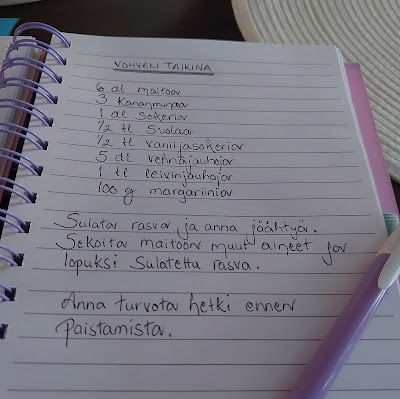 VOHVELI TAIKINA
6 dl maitoa
3 kananmunaa
1 dl sokeria
1/2 tl suolaa
1/2 tl vaniljasokeria
5 dl vehnäjauhoja
1 tl leivinjauhoja
100 g margariinia
Sulata rasva ja anna jäähtyä.
Sekoita maitoon muut aineet ja
lopuksi Sulatettu rasva.
Anna turvota hetki ennen
paistamista.